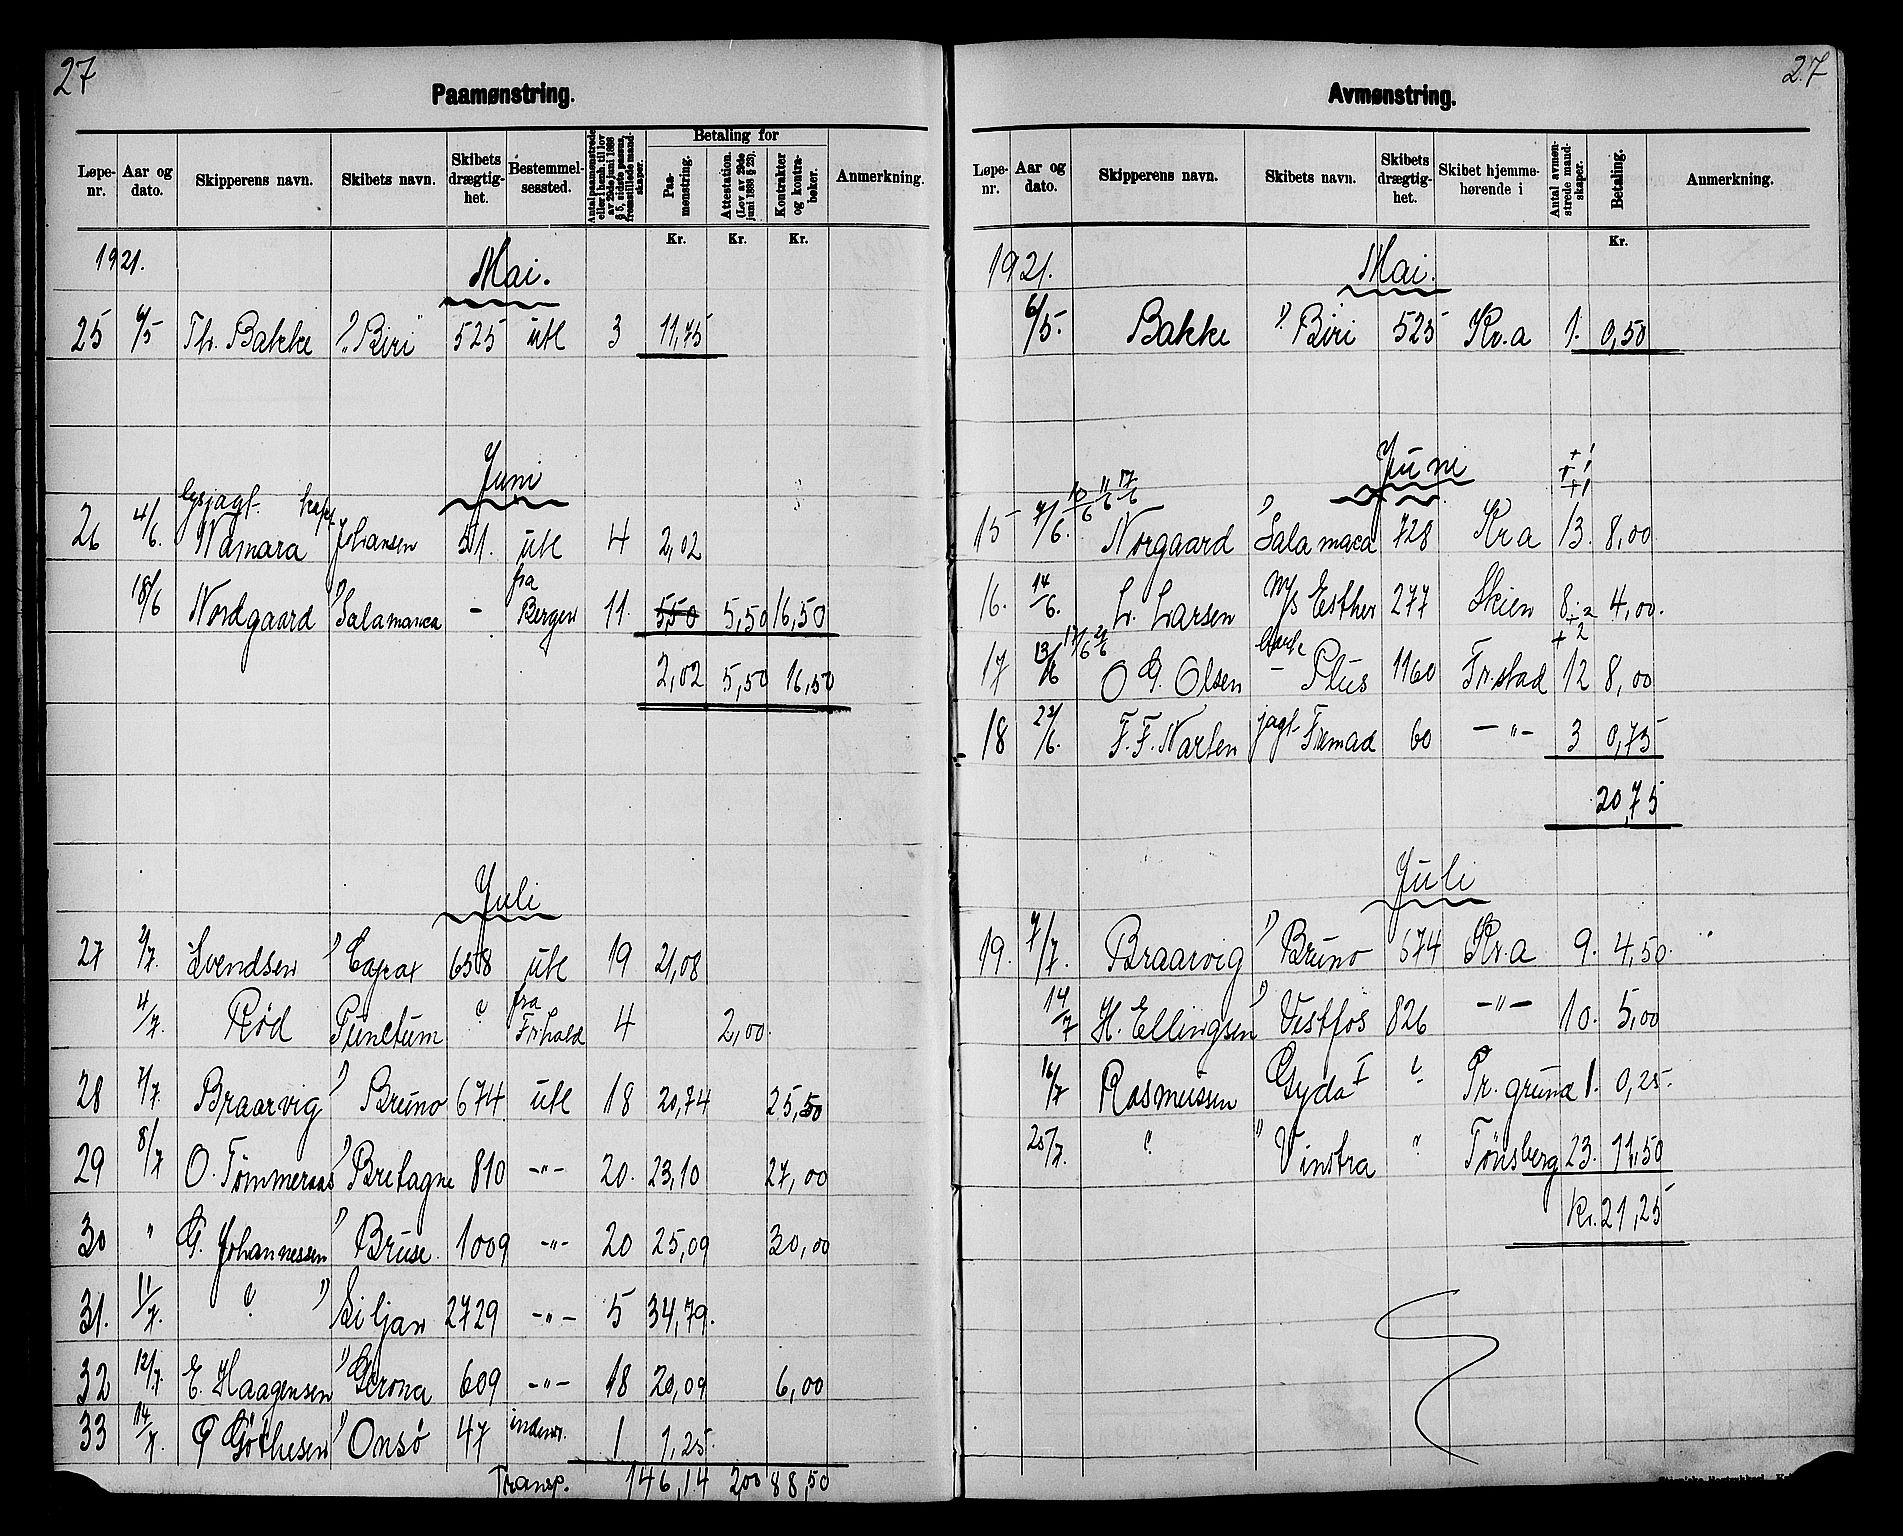 27
Paamønstring.
Løpe-nr. Aar og dato. Skipperens navn. Skibets navn. Skibets drægtig-het. Bestemmel-sessted. Antal paamønstrede eller i henh. til lov av 29de juni 1888 § 5, sidste passus, fremstillede mand-skaper. Betaling for Paa-mønstring. Attestation. (Lov av 29de juni 1888 § 23). Kontrakter og kontra-bøker. Anmerkning.
Kr. Kr. Kr.
1921. Mai.
25 6/5 Th. Bakke "Biri" 525 utl 3 11,75
Juni
26 4/6. lysjagt. Wamara kapt. Johansen 51. utl 4 2,02
18/6 Nordgaard " Salamanca - fra Bergen 11. 5,50 5,50 16,50
2,02 5,50 16,50
Juli
27 2/7. Svendsen " Caprax 658 utl 19 21,08
4/7. Rød Punctum " fra Frhald 4 2,00.
28 7/7. Braarvig " Bruno 674 utl 18 20,74 25,50
29 8/7 O. Tømmeraas " Bretagne 810 -"- 20. 23,10 27,00
30 " G. Johannessen " Bruse. 1009 -"- 20 25,09 30,00
31. 11/7. " " Siljan 2729 -"- 5 34,79.
32 12/7. E. Haagensen " Gerona 609 -"- 18 20,09 6,00
33 14/7. Göthesen " Onsö 47 indenr. 1 1,25.
Transp. 146,14 2,00 88,50
27
Avmønstring.
Løpe-nr. Aar og dato. Skipperens navn. Skibets navn. Skibets drægtig-het. Skibet hjemme-hørende i Antal avmøn-strede mand-skaper. Betaling. Anmerkning.
Kr.
1921. Mai.
6/5. Bakke " Biri 525 Kr.a 1. 0,50
Juni
+1
+1
+1
15 7/6. 10/6 11/6 17/6 Norgaard " Salamaca 728 Kr a 13. 8,00
16. 14/6. L. Larsen M/s Esther 277 Skien 8+2 4,00.
17 13/6 17/6 2/6 O G. Olsen bark - Plus 1160 Fr.stad +2 12 8,00
18 22/6. F. F. Narten jagt- Fremad 60 -"- 3 0,75
20,75
Juli
19. 7/7. Braarvig " Bruno 674 Kr.a 9. 4,50.
14/7 H. Ellingsen " Vestfos 826 -"- 10. 5,00
16/7 Rasmussen Gyda I " Pr. grund 1. 0,25.
25/7. " " Vinstra " Tönsberg 23. 11,50
Kr. 21,25